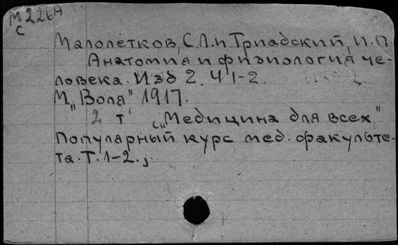 М 226А
С
Малолетков, С.Л. и Триадский, И.П.
Анатомия и физиология че-
ловека. Изд 2. Ч 1-2.
М „Воля" 1917.
2 т „Медицина для всех"
Популярный курс мед. факульте-
та. Т. 1-2.